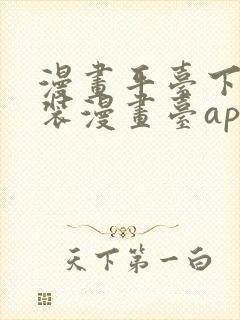 漫畫平臺下
裝漫畫臺ap
天下第一白